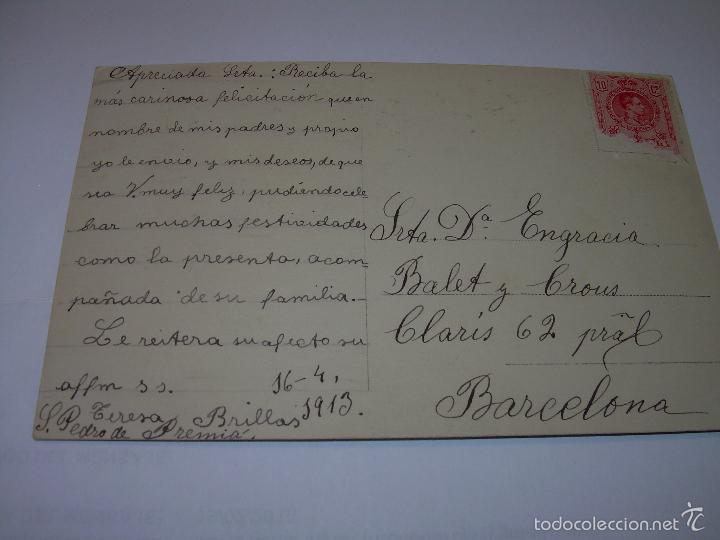 Apreciada Srta.: Reciba la
más cariñosa felicitación que en
nombre de mis padres y propio
yo le envio, y mis deseos, de que
sea V. muy feliz, pudiendo cele-
brar muchas festividades
como la presenta, acom-
pañada de su familia.-
Le reitera su afecto su
affm s s. 16-4,
Teresa Brillas 1913.
S. Pedro de Premiá.
10 Cs
Srta. Dª. Engracia
Balet y Crous
Claris 62 pral
Barcelona
todocoleccion.net